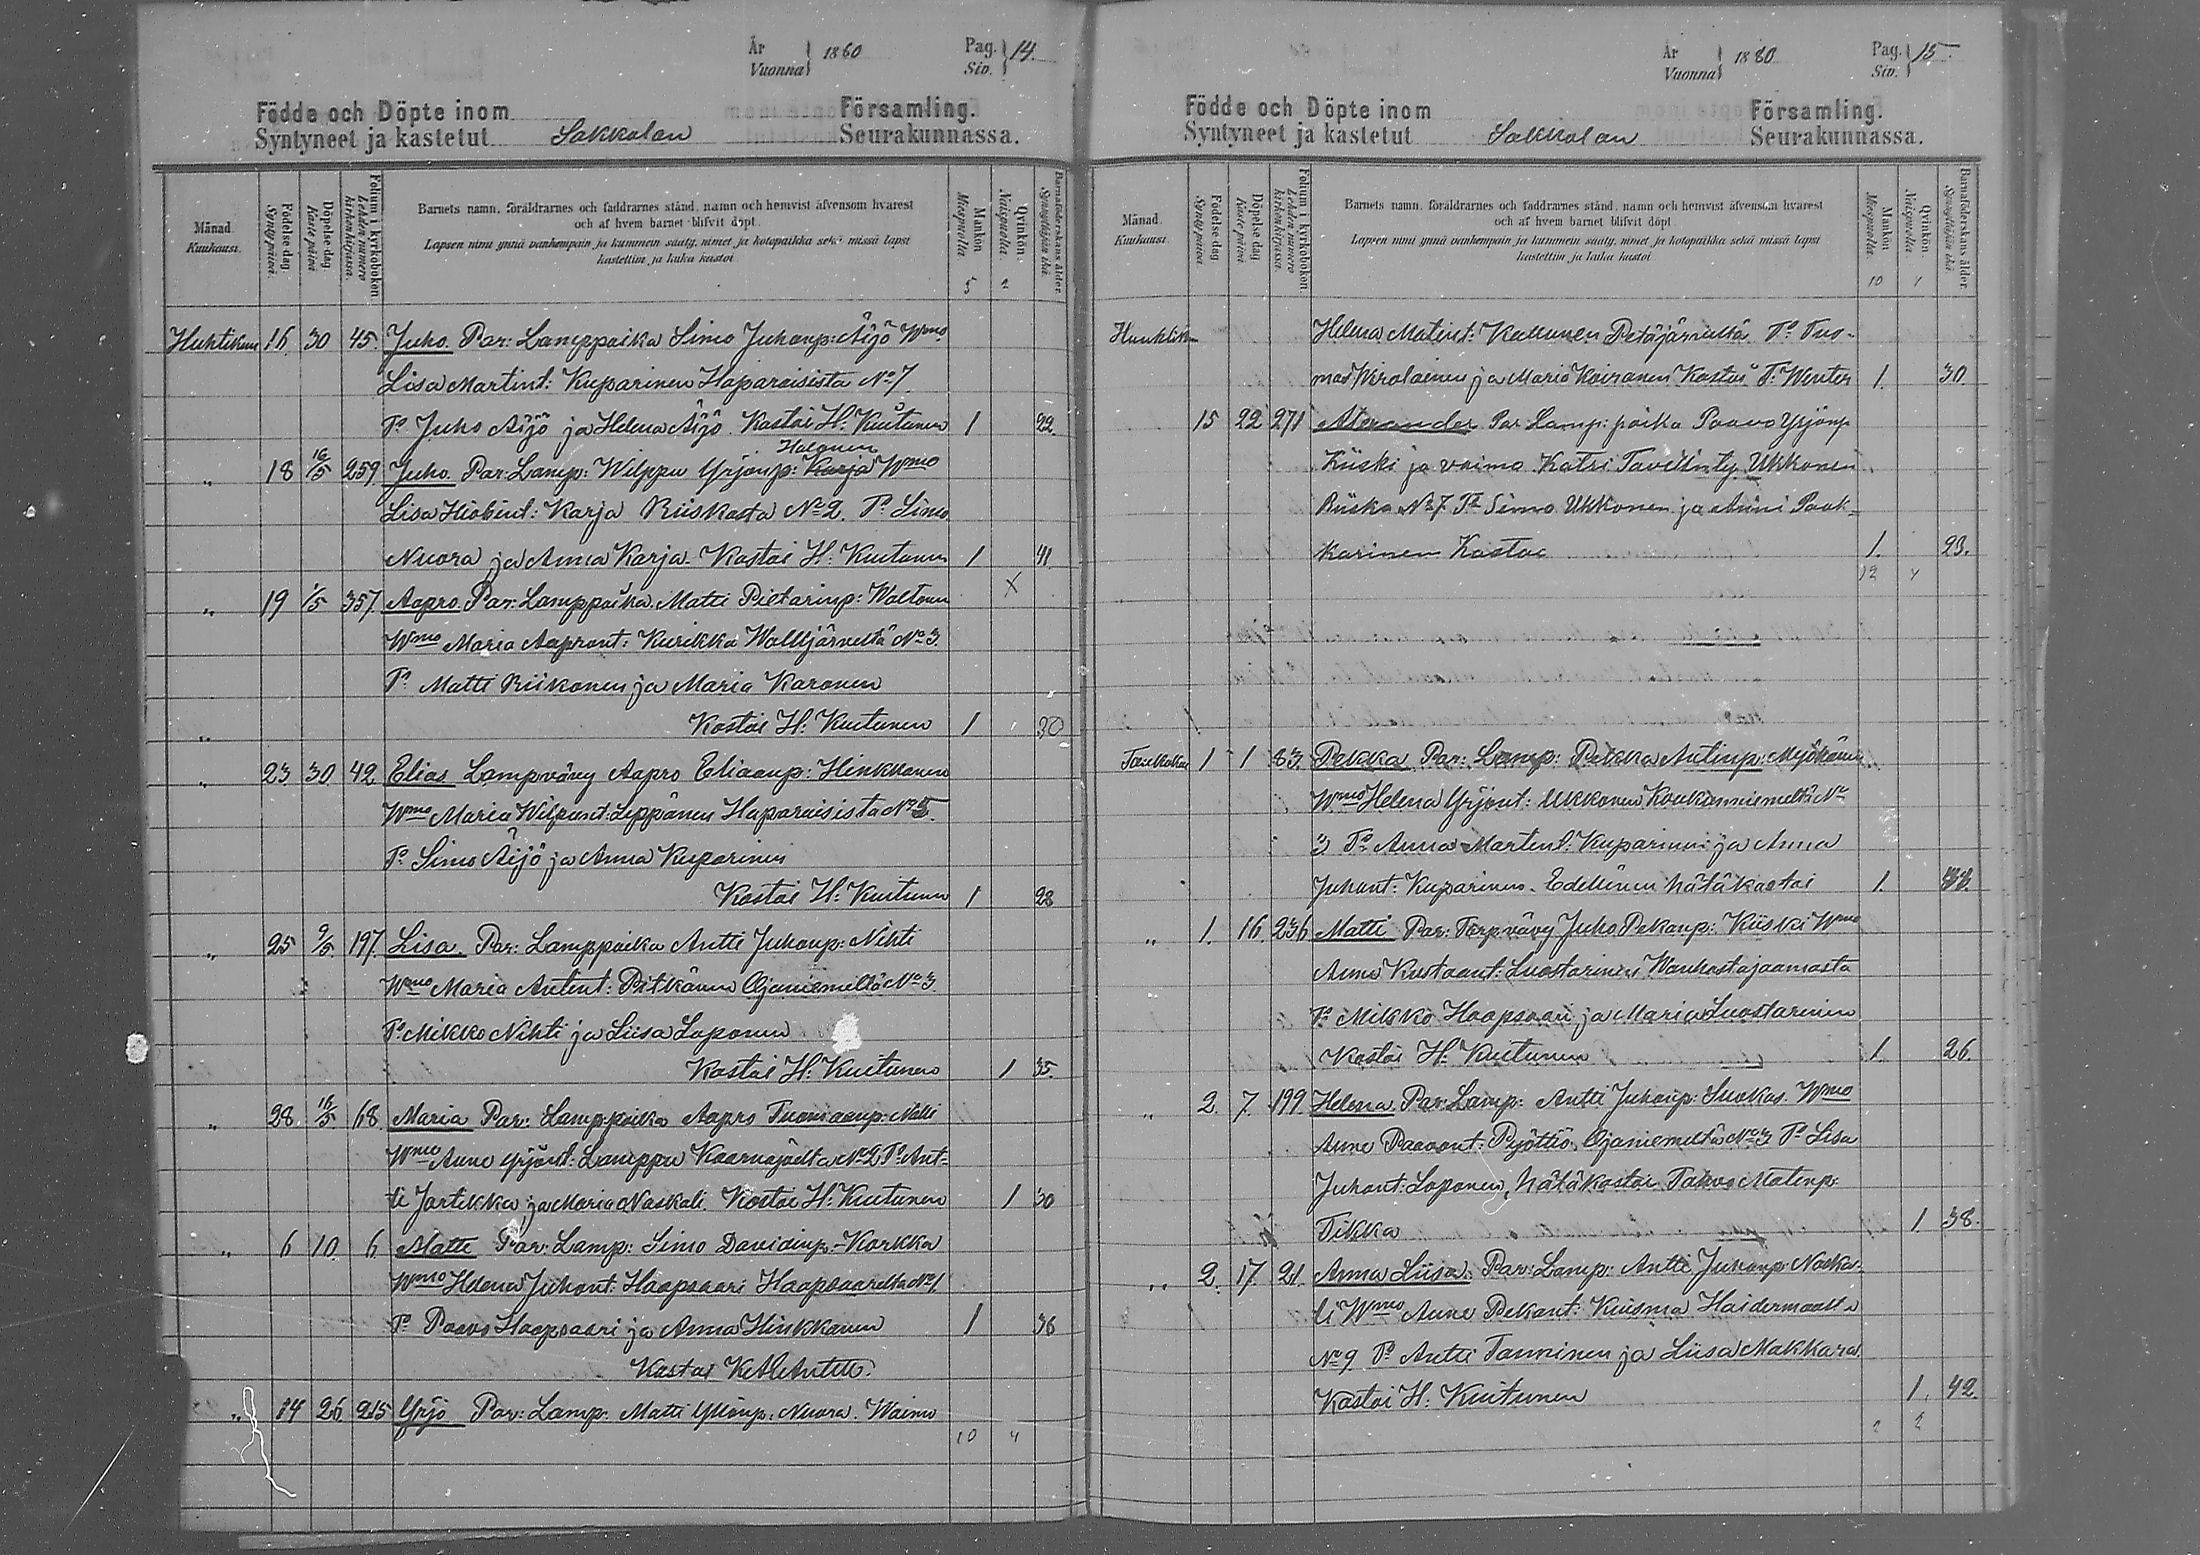 År
Vuonna} 1860
Pag.
Siv.} 14.
Födde och Döpte inom Församling.
Syntyneet ja kastetut Sakkolan Seurakunnassa.
Månad. Kuukausi. Födelse dag Synty päivä. Döpelse dag Kaste päivä Folium i kyrkoboken Lehden numero kirkonkirjassa. Barnets namn, föräldrarnes och faddrarnes stånd, namn och hemvist äfvensom hvarest
och af hvem barnet blifvit döpt.
Lapsen nimi ynnä vanhempain ja kummein sääty, nimet ja kotopaikka sekä missä lapsi
kastettiin ja kuka kastoi
Mankön Miespuolia. Qvinkön. Naispuolia. Barnaföderskans ålder Synnyttäjän ikä.
5 2
Huhtikuu 16. 30 45. Juho. Par: Lamppaika Simo Juhonp: Äijö Wmo
Lisa Martint: Kuparinen Haparaisista No 7
To Juho Äijö ja Helena Äijö. Kastoi H: Kuitunen 1 22.
Halonen
" 18 16/5 259. Juho. Par: Lamp: Wilppu Yrjönp: Karja Wmo
Lisa Hiobint: Karja Riiskasta No 2. To Simo
Nuora ja Anna Karja. Kastoi H: Kuitunen 1 41.
X
" 19 1/5 357. Aapro. Par: Lamppaika Matti Pietarinp: Waltonen
Wmo Maria Aapront: Kurikka Walkjärveltä No 3.
To Matti Riikonen ja Maria Karonen
" Kastoi H: Kuitunen 1 30
" 23 30 42 Elias Lampvävy Aapro Eliaanp: Hinkkanen
Wmo Maria Wilpunt: Leppänen Haparaisista No 5.
To Simo Äijö ja Anna Kuparinen
Kastoi H: Kuitunen 1 28
" 25 9/5. 197. Lisa. Par: Lamppaika Antti Juhonp: Nihti
Wmo Maria Antint: Pitkänen Ojaniemeltä No 3.
To Mikko Nihti ja Liisa Loponen
Kastoi H: Kuitunen 1 35.
" 28. 16/5. 68. Maria Par: Lamppaika Aapro Tuomaanp:
Wmo Anne Yrjönt: Lamppu Kaarnajoelta No 2 To Ant-
ti Jartikka ja Maria Naskali. Kastoi H: Kuitunen 1 30
" 6 10. 6. Matti Par: Lamp: Simo Davidinp: Korkka
Wmo Helena Juhont: Haapsaari Haapsaarelta No 1
To Paavo Haapsaari ja Anna Hinkkanen 1 36
Kastoi
" 14 26 215 Yrjö Par: Lamp: Matti Yrjönp: Nuora. Waimo
10 4
År
Vuonna} 1880
Pag.
Siv.} 15
Födde och Döpte inom Församling.
Syntyneet ja kastetut Sakkolan Seurakunnassa.
Månad. Kuukausi. Födelse dag Synty päivä Döpelse dag Kaste päivä. Folium i kyrkoboken Lehden numero kirkonkirjassa. Barnets namn, föräldrarnes och faddrarnes stånd, namn och hemvist äfvensom hvarest
och af hvem barnet blifvit döpt.
Lapsen nimi ynnä vanhempain ja kummein sääty, nimet ja kotopaikka sekä missä lapsi
kastettiin ja kuka kastoi
Mankön Miespuolia. Qvinkön. Naispuolia. Barnaföderskans ålder Synnyttäjän ikä.
10 4
Helena Matint: Kallunen Petäjärveltä. To Tuo-
mas Wirolainen ja Maria Koiranen Kastoi T: Wenter 1. 30.
15 22 271 Alexander Par Lamp: paika Paavo Yrjönp
Kiiski ja vaimo Katri Ukkonen
Riiska No 7. To Simo Ukkonen ja Anni Paak-
karinen Kastoi 1. 23.
12 4
Toukokuu 1 1 83. Pekka Par: Lamp: Pekka Antinp: Myöhänen
Wmo Helena Yrjönt: Ukkonen Koukunniemeltä No
3 To Anna Martint: Kuparinen ja Anna
Juhont: Kuparinen. Edellinen hätäkastoi 1.
" 1. 16. 236 Matti Par: Torpvävy Juho Pekanp: Kiiski Wmo
Anna Kustaant: Luostarinen Wanhastajaamasta
To Mikko Haapsaari ja Maria Luostarinen
Kastoi H: Kuitunen 1. 26.
" 2. 7. 199. Helena. Par: Lamp: Antti Juhonp: Suokas. Wmo
Anne Paavont: Pyöttiö. Ojaniemeltä No 3 To Lisa
Juhont: Loponen, hätäkastoi Pahvo Matinp:
Tikka 1 38.
" 2. 17. 21. Anna Liisa. Par: Lamp: Antti Juhonp: Naska-
li Wmo Anne Pekant: Kuisma Haidermaalta
No 9 To Antti Tanninen ja Liisa Makkara.
Kastoi H: Kuitunen 1. 42.
2 2